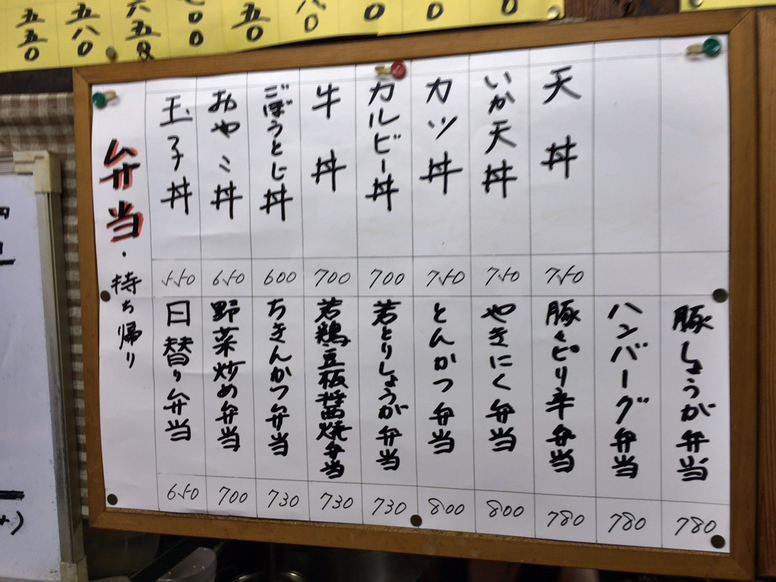 弁当・持ち帰り
天丼 750
いか天丼 750
カツ丼 750
カルビー丼 700
牛丼 700
ごぼうとじ丼 600
おやこ丼 650
玉子丼 550
豚しょうが弁当 780
ハンバーグ弁当 780
豚くピリ辛弁当 780
やきにく弁当 800
とんかつ弁当 800
若とりしょうが弁当 730
若鶏豆板醤焼弁当 730
ちきんかつ弁当 730
野菜炒め弁当 700
日替り弁当 650